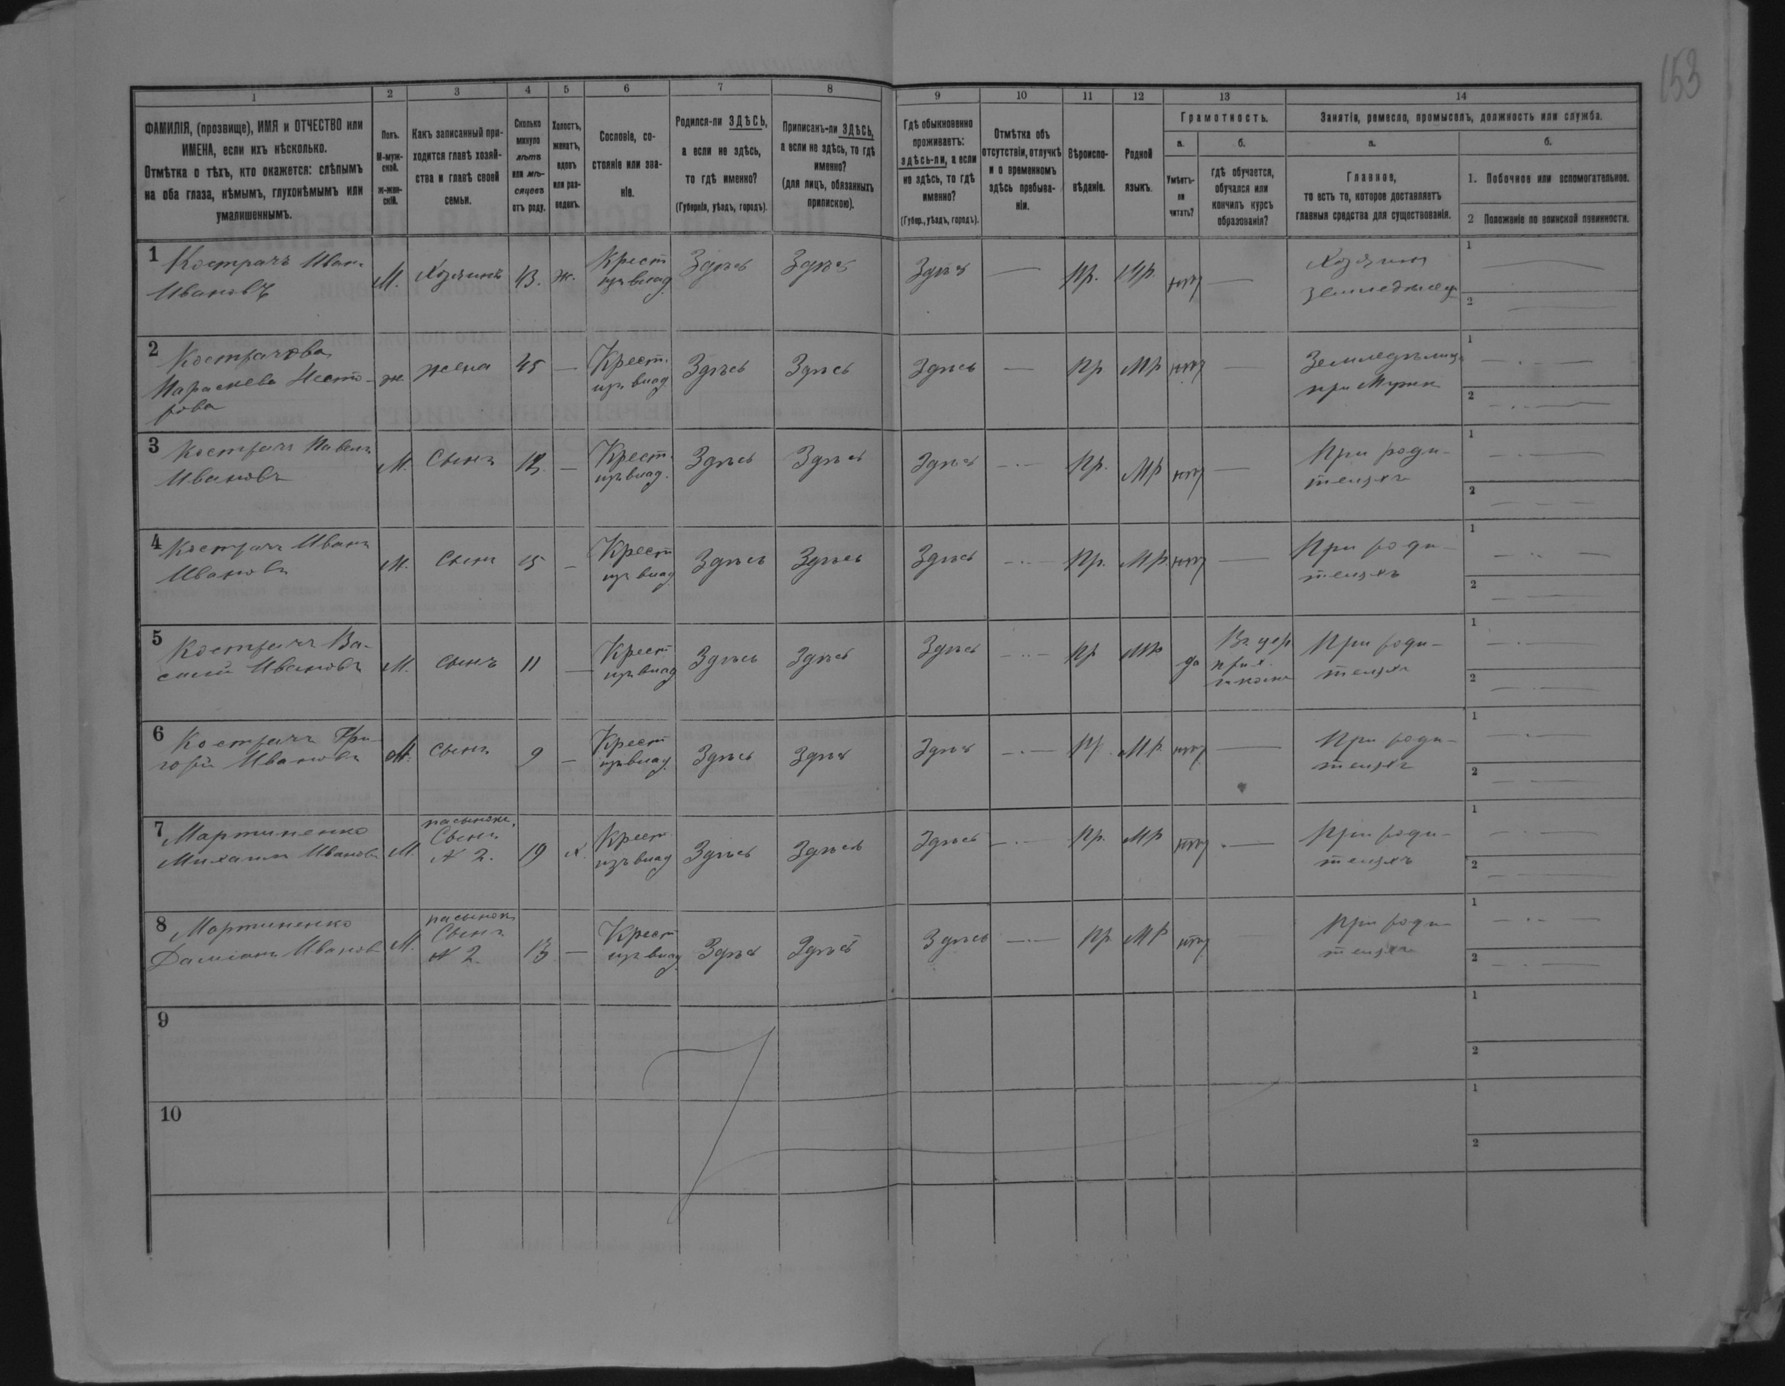 153
1 2 3 4 5 6 7 8 9 10 11 12 13 14
ФАМИЛІЯ, (прозвище), ИМЯ и ОТЧЕСТВО или
ИМЕНА, если ихъ нѣсколько.
Отмѣтка о тѣхъ, кто окажется: слѣпымъ
на оба глаза, нѣмымъ, глухонѣмымъ или
умалишеннымъ.
Полъ.
М-муж-
ской.
ж-жен-
скій.
Какъ записанный при-
ходится главѣ хозяй-
ства и главѣ своей
семьи.
Сколько
минуло
лѣтъ
или мѣ-
сяцевъ
отъ роду.
Холостъ,
женатъ,
вдовъ
или раз-
веденъ.
Сословіе, со-
стояніе или зва-
ніе.
Родился-ли ЗДѢСЬ,
а если не здѣсь,
то гдѣ именно?
(Губернія, уѣздъ, городъ).
Приписанъ-ли ЗДѢСЬ,
а если не здѣсь, то гдѣ
именно?
(для лицъ, обязанныхъ
припискою).
Гдѣ обыкновенно
проживаетъ:
здѣсь-ли, а если
не здѣсь, то гдѣ
именно?
(Губер., уѣздъ, городъ).
Отмѣтка объ
отсутствіи, отлучкѣ
и о временномъ
здѣсь пребыва-
ніи.
Вѣроиспо-
вѣданіе.
Родной
языкъ.
Грамотность.
а.
Умѣетъ-
ли
читать?
б.
гдѣ обучается,
обучался или
кончилъ курсъ
образованія?
Занятіе, ремесло, промыселъ, должность или служба.
а.
Главное,
то есть то, которое доставляетъ
главныя средства для существованія.
б.
1. Побочное или вспомогательное.
2 Положеніе по воинской повинности.
1 Кострачъ Иванъ
Ивановъ
М. Хозяинъ 43. ж. Крест. изъ влад. Здѣсь Здѣсь Здѣсь — Пр. Мр. нѣтъ — Хозяинъ
земледѣлецъ
1
2
2 Кострачова
Параскева Несто-
рова
ж жена 45 — Крест. изъ влад Здѣсь Здѣсь Здѣсь — Пр Мр нѣтъ — Земледѣлица
при мужѣ
1
2
3 Кострачъ Павелъ
Ивановъ
М. Сынъ — Крест. изъ влад. Здѣсь Здѣсь Здѣсь — Пр. Мр нѣтъ — При роди-
теляхъ
1
2
4 Кострачъ Иванъ
Ивановъ
М. Сынъ 15 — Крест изъ влад Здѣсь Здѣсь Здѣсь — Пр. Мр нѣтъ — При роди-
теляхъ
1
2
5 Кострачъ Ва-
силій Ивановъ
М. сынъ 11 — Крест изъ влад Здѣсь Здѣсь Здѣсь — Пр Мр да Въ цер.
прих.
школѣ При роди-
теляхъ
1
2
6 Кострачъ Гри-
горій Ивановъ
М. сынъ 9 — Крест изъ влад. Здѣсь Здѣсь Здѣсь — Пр. Мр нѣтъ — При роди-
теляхъ
1
2
7 Мартиненко
Михаилъ Ивановъ
М. пасынокъ,
Сынъ
N 2. 19 х. Крест изъ влад Здѣсь Здѣсь Здѣсь — Пр. Мр нѣтъ — При роди-
теляхъ
1
2
8 Мартиненко
Даміанъ Ивановъ
М. пасынокъ
Сынъ
N 2. 13 — Крест изъ влад Здѣсь Здѣсь Здѣсь — Пр Мр нѣтъ При роди-
теляхъ
1
2
9
1
2
10
1
2